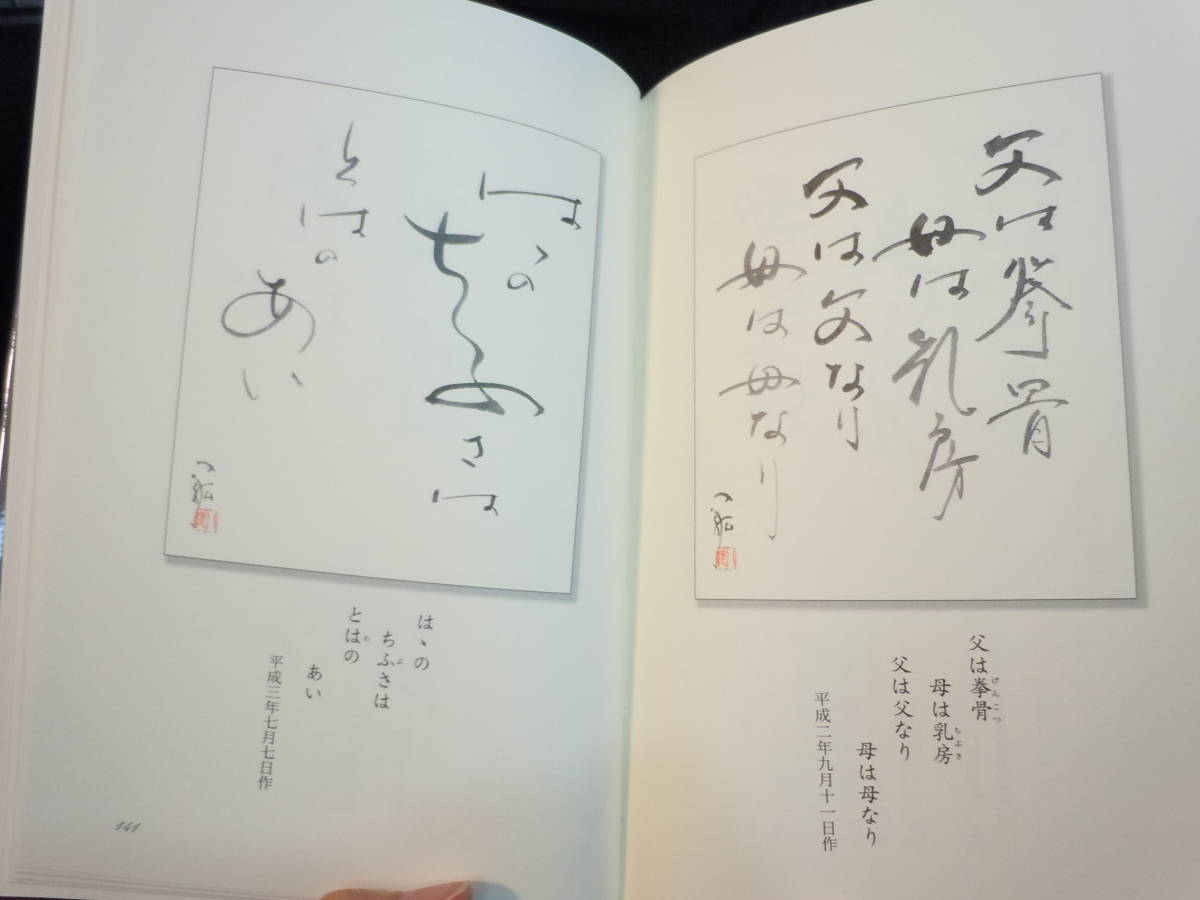 父は拳骨
母は乳房
父は父なり
母は母なり
父は拳骨
げんこつ
母は乳房
ちぶさ
父は父なり
母は母なり
平成二年九月十一日作
はゝの
ちふさは
とはの
あい
はゝの
ちふさは
ぶ
とはの
わ
あい
平成三年七月七日作
141